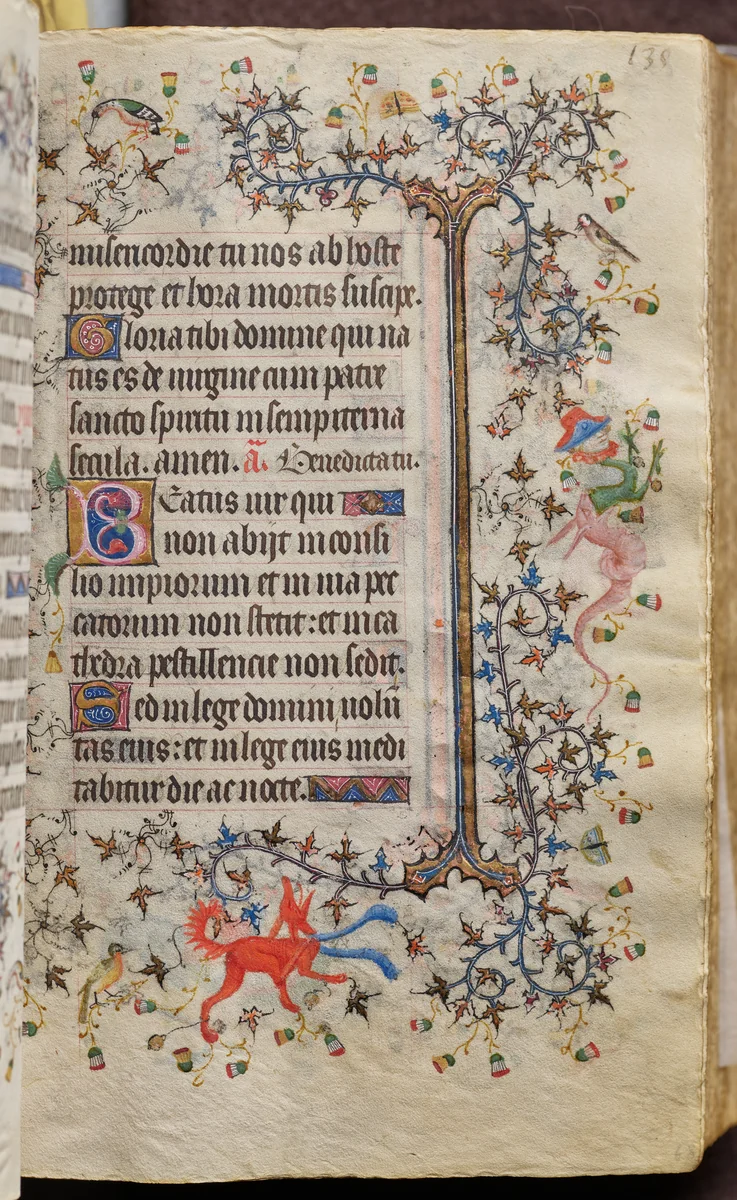 138
misericordie tu nos ab hoste
protege et hora mortis suscipe.
Gloria tibi domine qui na
tus es de uirgine cum patre
sancto spiritu in sempiterna
secula. amen. a. Benedicta tu.
Beatus uir qui
non abijt in consi
lio impiorum et in uia pec
catorum non stetit: et in ca
thedra pestillencie non sedit.
Sed in lege domini uolū
tas eius: et in lege eius medi
tabitur die ac nocte.